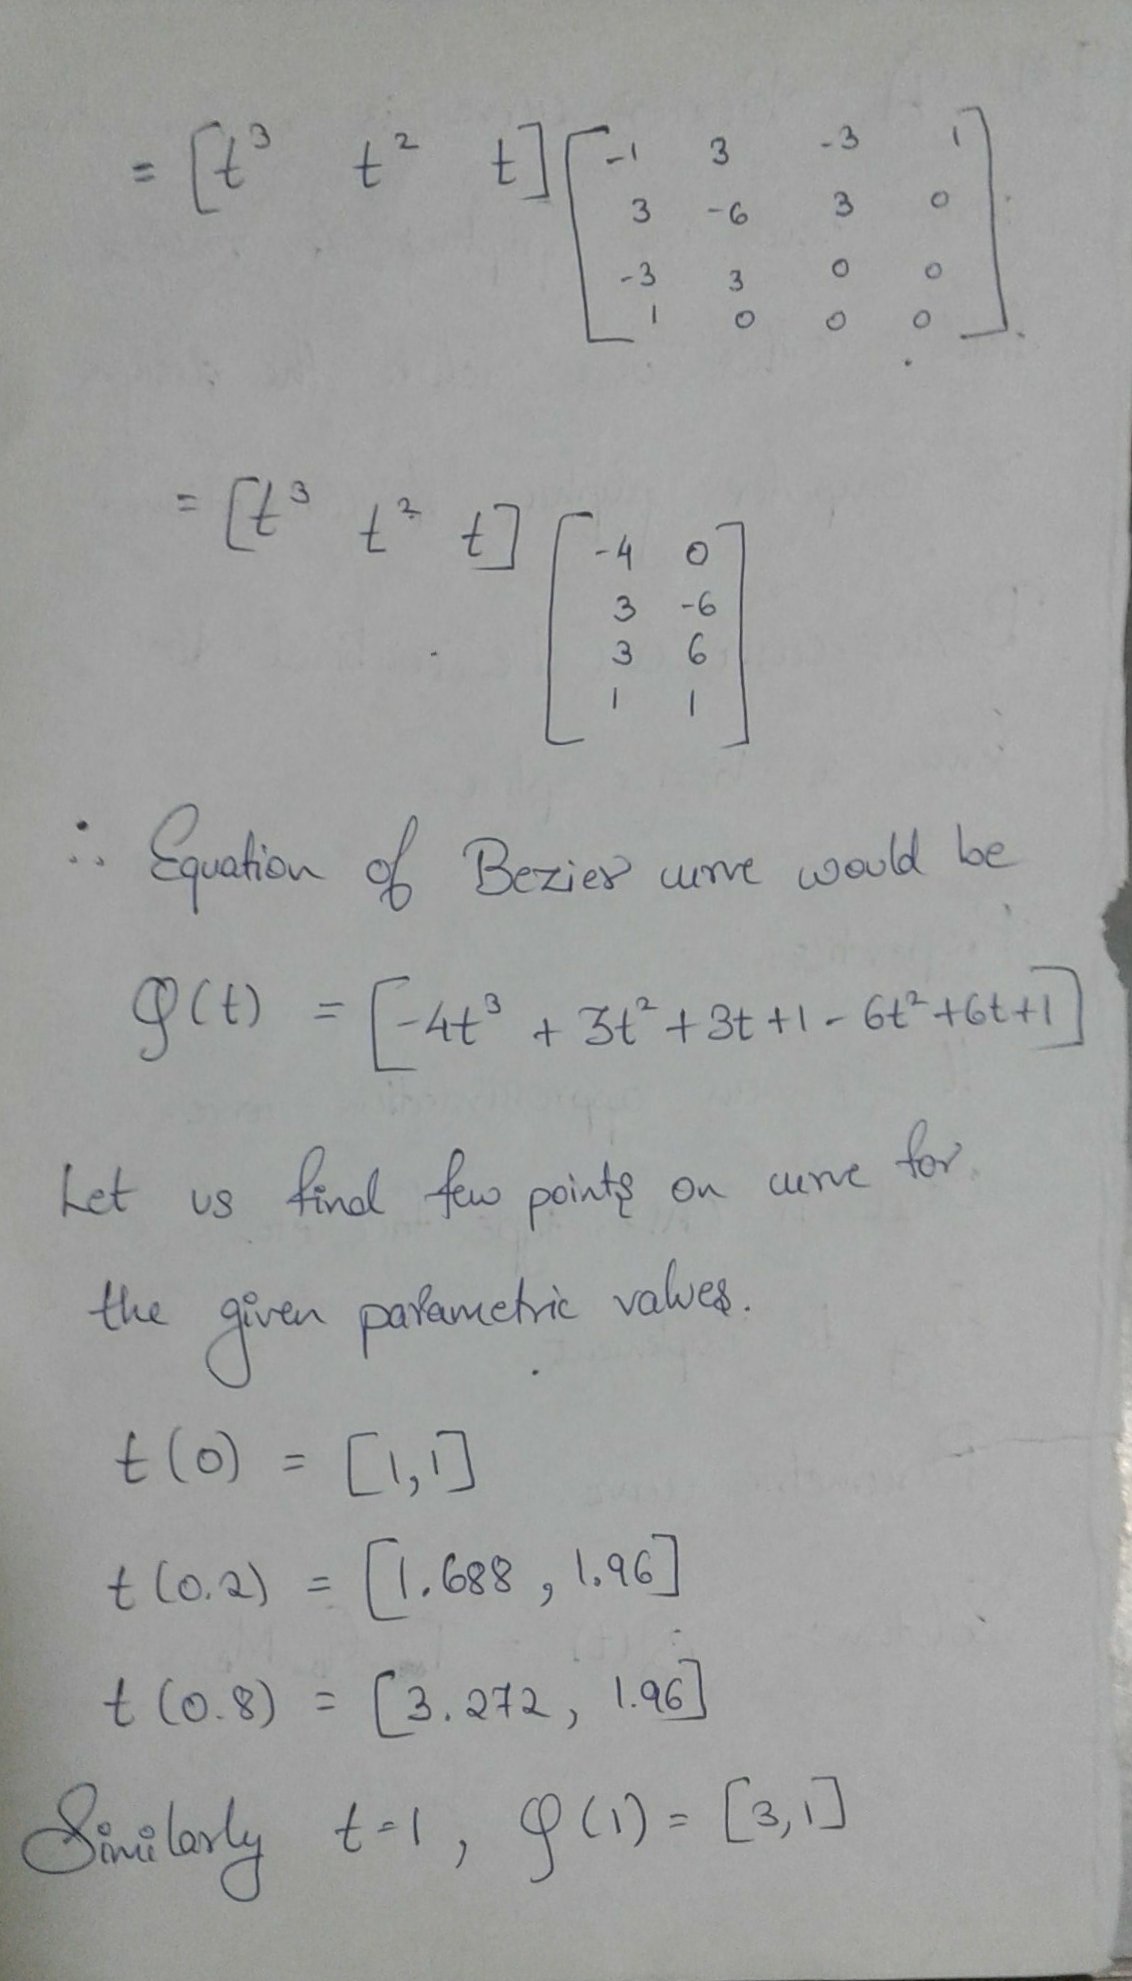 = [t³ t² t] [-1 3 -3 1
3 -6 3 0
-3 3 0 0
1 0 0 0].
= [t³ t² t] [-4 0
3 -6
3 6
1 1]
∴ Equation of Bezier curve would be
φ(t) = [-4t³ + 3t² + 3t + 1 - 6t² + 6t + 1]
Let us find few points on curve for
the given parametric values.
t(0) = [1,1]
t(0.2) = [1.688, 1.96]
t(0.8) = [3.272, 1.96]
Similarly t=1, φ(1) = [3,1]